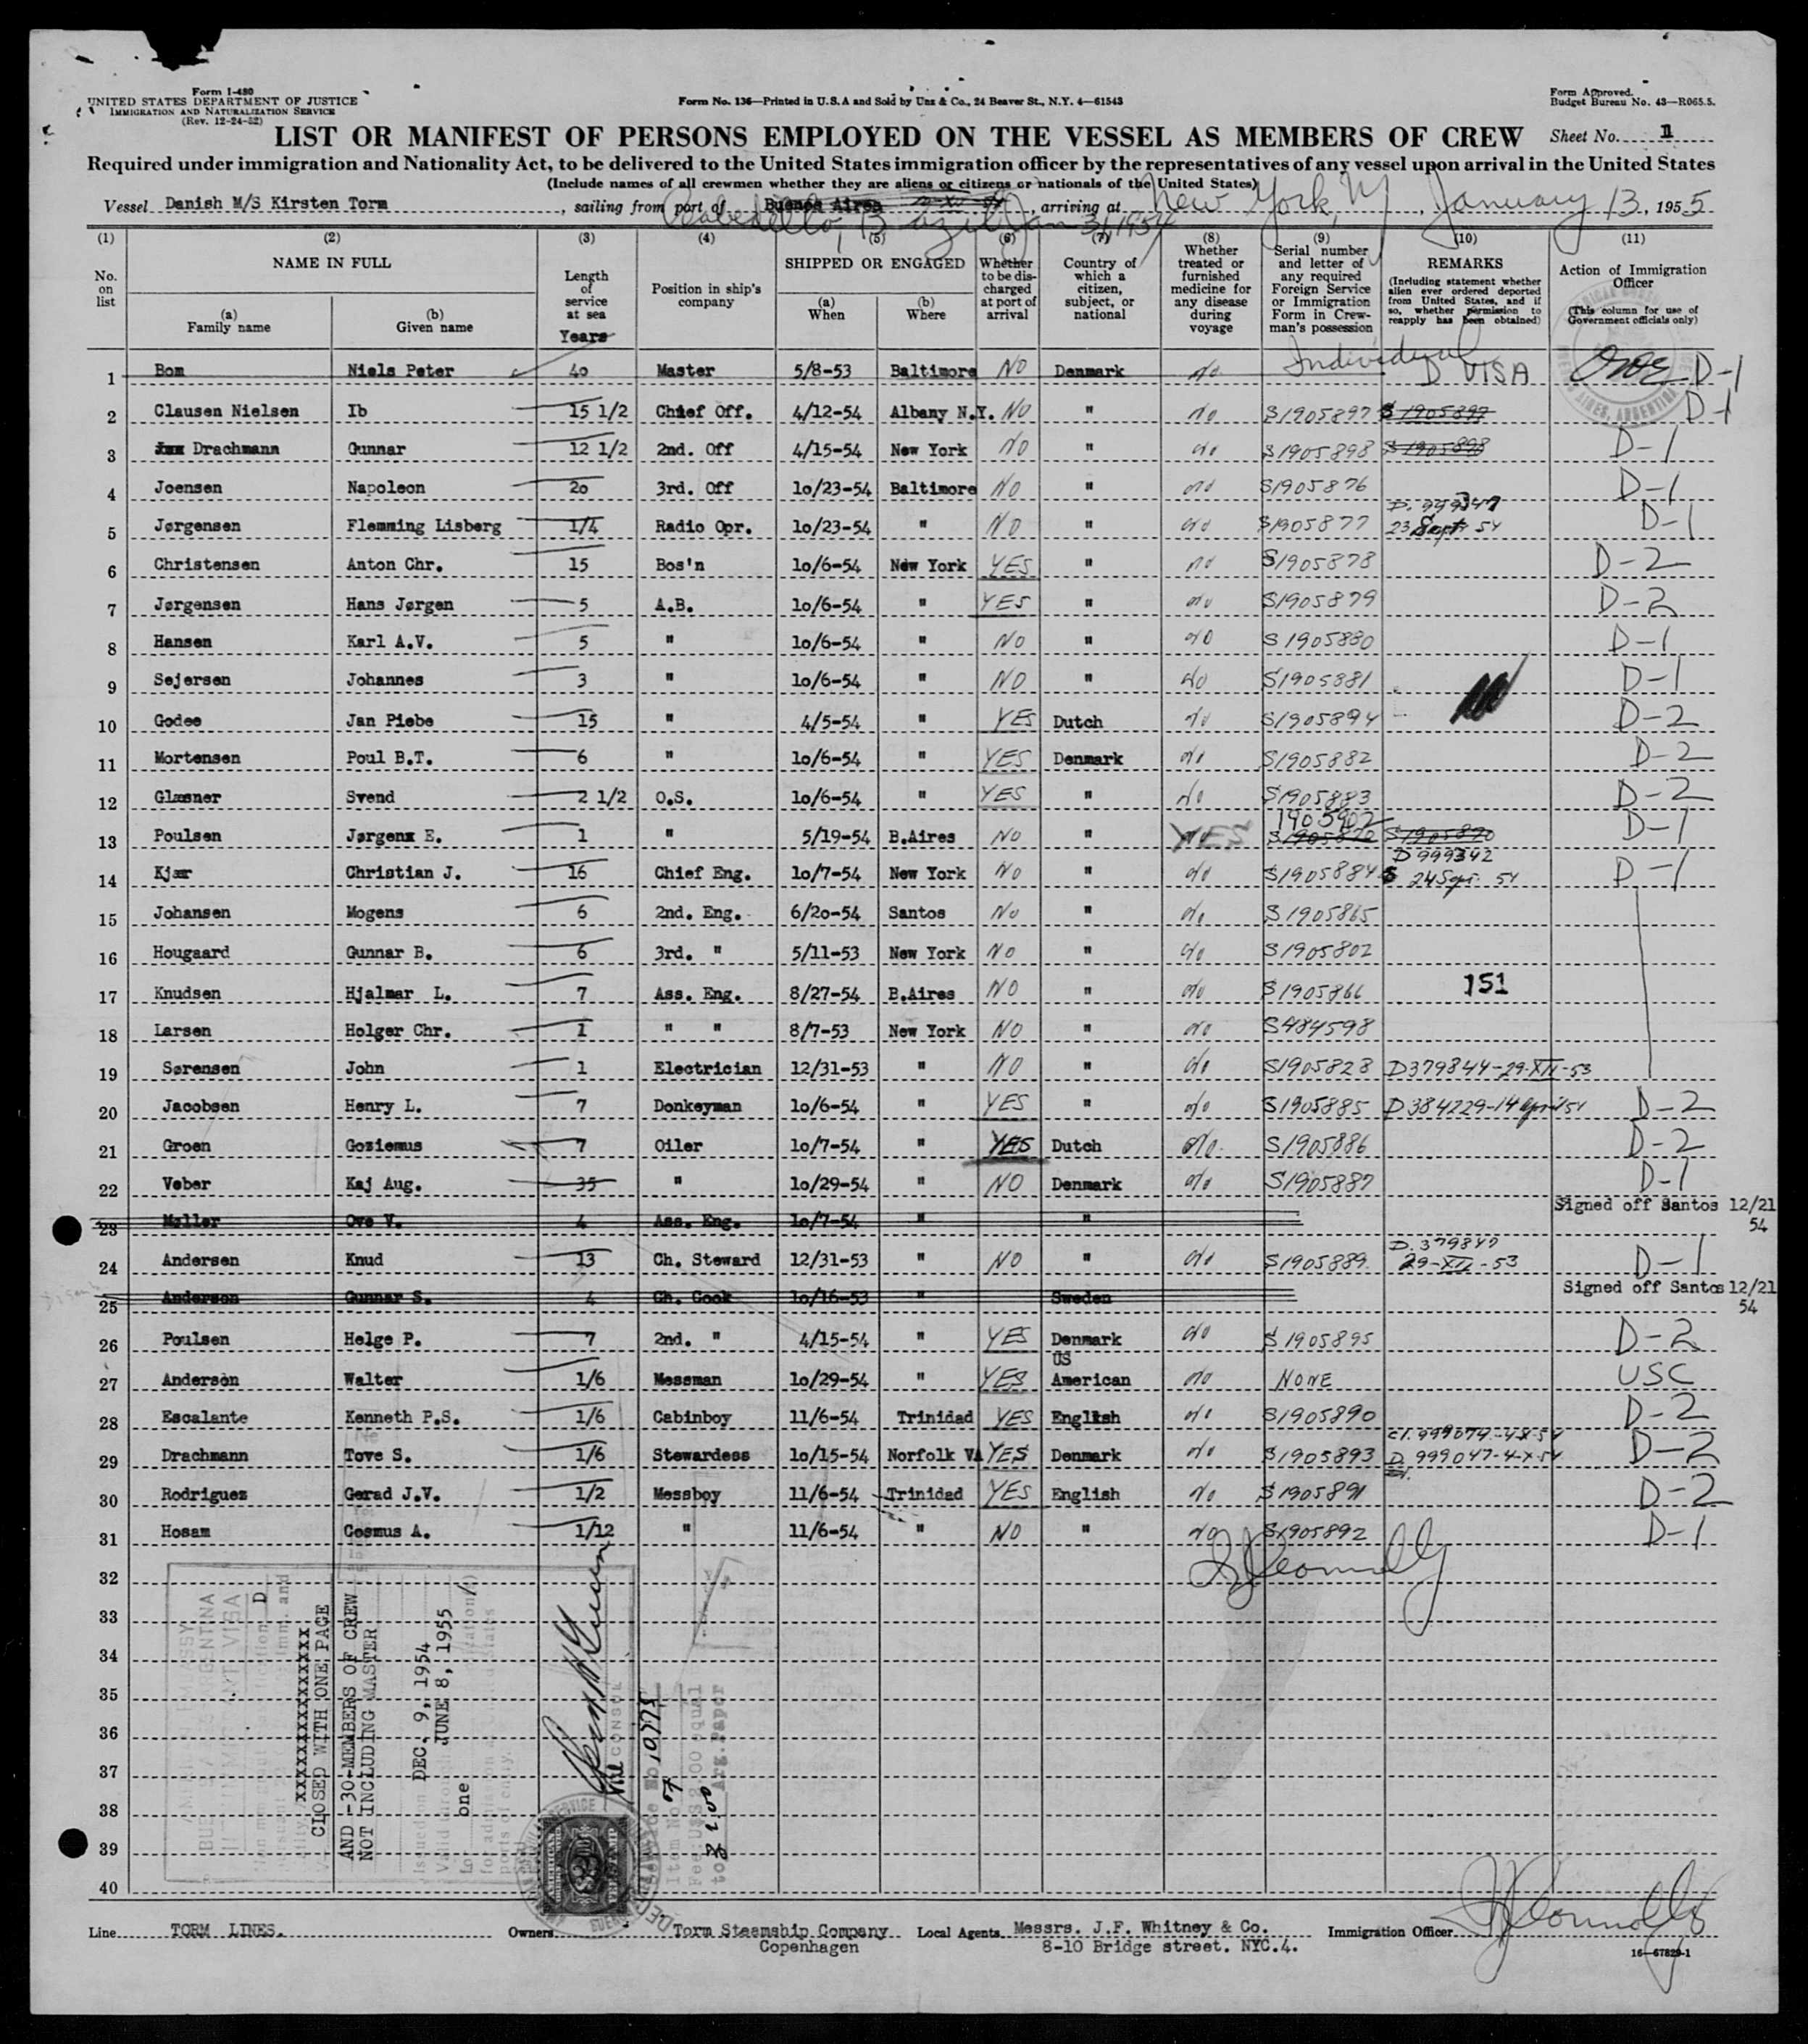 Form I-480
UNITED STATES DEPARTMENT OF JUSTICE
IMMIGRATION AND NATURALIZATION SERVICE
(Rev. 12-24-52)
Form No. 136—Printed in U.S.A and Sold by Unz & Co., 24 Beaver St., N.Y. 4—61543
Form Approved.
Budget Bureau No. 43—R065.5.
LIST OR MANIFEST OF PERSONS EMPLOYED ON THE VESSEL AS MEMBERS OF CREW
Sheet No. 1
Required under immigration and Nationality Act, to be delivered to the United States immigration officer by the representatives of any vessel upon arrival in the United States
(Include names of all crewmen whether they are aliens or citizens or nationals of the United States)
Vessel Danish M/S Kirsten Torm, sailing from port of Buenos Aires, arriving at New York, NY, January 13, 1955
Cabedello, Brazil Jan 3, 1954
(1) (2) (3) (4) (5) (6) (7) (8) (9) (10) (11)
No. on list
NAME IN FULL
(a) Family name
(b) Given name
Length of service at sea
Years
Position in ship's company
SHIPPED OR ENGAGED
(a) When
(b) Where
Whether to be discharged at port of arrival
Country of which a citizen, subject, or national
Whether treated or furnished medicine for any disease during voyage
Serial number and letter of any required Foreign Service or Immigration Form in Crewman's possession
REMARKS
(Including statement whether alien ever ordered deported from United States, and if so, whether permission to reapply has been obtained)
Action of Immigration Officer
(This column for use of Government officials only)
1 Bom Niels Peter 40 Master 5/8-53 Baltimore NO Denmark no Individual D VISA D-1
2 Clausen Nielsen Ib 15 1/2 Chief Off. 4/12-54 Albany N.Y. NO " no S1905897 S 1905897 D-1
3 Drachmann Gunnar 12 1/2 2nd. Off 4/15-54 New York NO " no S1905898 S 1905898 D-1
4 Joensen Napoleon 20 3rd. Off 10/23-54 Baltimore NO " no S1905876 D-1
5 Jørgensen Flemming Lisberg 1/4 Radio Opr. 10/23-54 " NO " no S1905877 D. 999347 23 Sept 54 D-1
6 Christensen Anton Chr. 15 Bos'n 10/6-54 New York YES " no S1905878 D-2
7 Jørgensen Hans Jørgen 5 A.B. 10/6-54 " YES " no S1905879 D-2
8 Hansen Karl A.V. 5 " 10/6-54 " NO " no S1905880 D-1
9 Sejersen Johannes 3 " 10/6-54 " NO " no S1905881 D-1
10 Godee Jan Piebe 15 " 4/5-54 " YES Dutch no S1905894 D-2
11 Mortensen Poul B.T. 6 " 10/6-54 " YES Denmark no S1905882 D-2
12 Glæsner Svend 2 1/2 O.S. 10/6-54 " YES " no S1905883 D-2
13 Poulsen Jørgen E. 1 " 5/19-54 B.Aires NO " YES 1905902 S1905870 D-1
14 Kjær Christian J. 16 Chief Eng. 10/7-54 New York NO " no S1905884 D999342 24 Sept. 54 D-1
15 Johansen Mogens 6 2nd. Eng. 6/20-54 Santos NO " no S1905865
16 Hougaard Gunnar B. 6 3rd. " 5/11-53 New York NO " no S1905802
17 Knudsen Hjalmar L. 7 Ass. Eng. 8/27-54 B.Aires NO " no S1905866 151
18 Larsen Holger Chr. 1 " " 8/7-53 New York NO " no S484598
19 Sørensen John 1 Electrician 12/31-53 " NO " no S1905828 D379844-29-XII-53
20 Jacobsen Henry L. 7 Donkeyman 10/6-54 " YES " no S1905885 D384229-14 April 54 D-2
21 Groen Goziemus 7 Oiler 10/7-54 " YES Dutch no S1905886 D-2
22 Veber Kaj Aug. 35 " 10/29-54 " NO Denmark no S1905887 D-1
23 Møller Ove V. 4 Ass. Eng. 10/7-54 " " Signed off Santos 12/21 54
24 Andersen Knud 13 Ch. Steward 12/31-53 " NO " no S1905889 D.379847 29-XII-53 D-1
25 Anderson Gunnar S. 4 Ch. Cook 10/16-53 " Sweden Signed off Santos 12/21 54
26 Poulsen Helge P. 7 2nd. " 4/15-54 " YES Denmark no S1905895 D-2
27 Anderson Walter 1/6 Messman 10/29-54 " YES US American no NONE USC
28 Escalante Kenneth P.S. 1/6 Cabinboy 11/6-54 Trinidad YES English no S1905890 D-2
29 Drachmann Tove S. 1/6 Stewardess 10/15-54 Norfolk VA YES Denmark no S1905893 D 999047-4-X-54 D-2
30 Rodriguez Gerad J.V. 1/2 Messboy 11/6-54 Trinidad YES English No S1905891 D-2
31 Hosam Cosmus A. 1/12 " 11/6-54 " NO " no S1905892 D-1
32
33
34
35
36
37
38
39
40
CLOSED WITH ONE PAGE
AND -30-MEMBERS OF CREW
NOT INCLUDING MASTER
DEC. 9, 1954
JUNE 8, 1955
one
Line TORM LINES.
Owners Torm Steamship Company
Copenhagen
Local Agents Messrs. J.F. Whitney & Co.
8-10 Bridge street. NYC.4.
Immigration Officer
16—67829-1